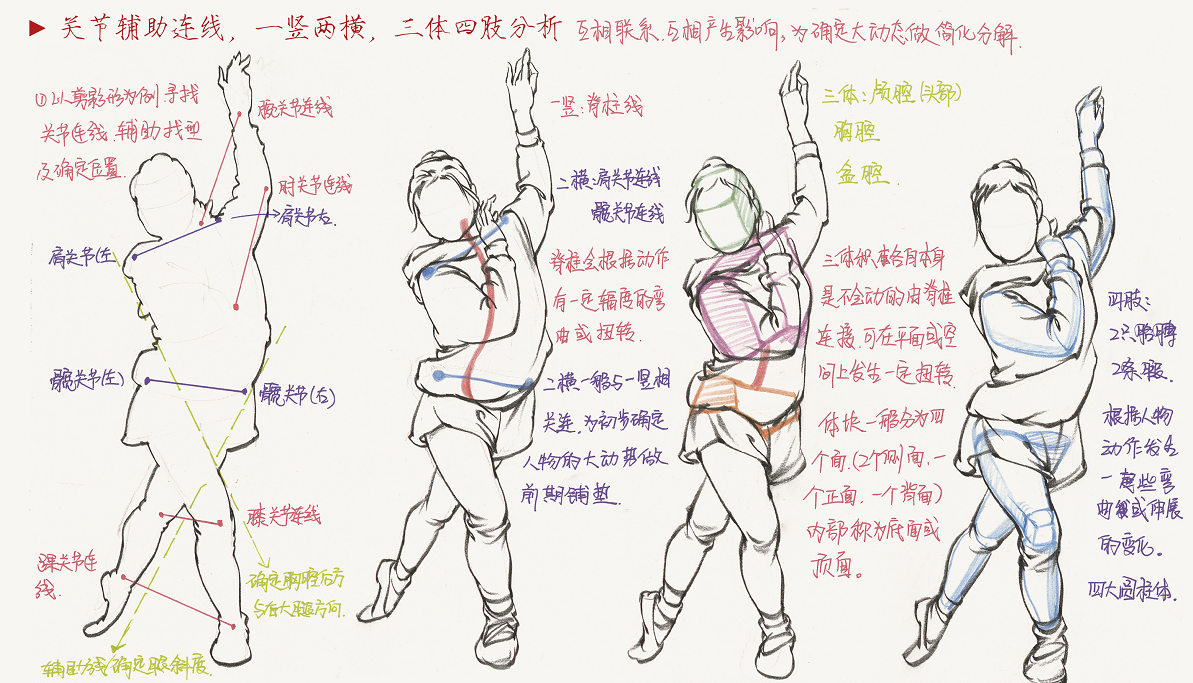 ▶ 关节辅助连线，一竖两横，三体四肢分析 互相联系.互相产生影响,为确定大动态做简化分解.
①以剪影形为例.寻找
关节连线.辅助找型
及确定位置.
腕关节连线
肘关节连线
肩关节右.
肩关节(左
髋关节(左)
髋关节(右)
膝关节连线
踝关节连
线.
确定胸腔后方
与左大腿方向.
辅助线确定倾斜度.
一竖:脊柱线
二横:肩关节连线
髋关节连线
脊柱会根据动作
有一定幅度的弯
曲或扭转.
二横一般与一竖相
关连.为初步确定
人物的大动势做
前期铺垫.
三体:颅腔(头部)
胸腔
盆腔.
三体积在各自本身
是不会动的由脊柱
连接.可在平面或空
间上发生一定扭转.
体块一般分为四
个面.(2个侧面,一
个正面.一个背面)
内部称为底面或
顶面。
四肢:
2只胳膊
2条腿.
根据人物
动作发生
一些弯
曲或伸展
的变化。
四大圆柱体.